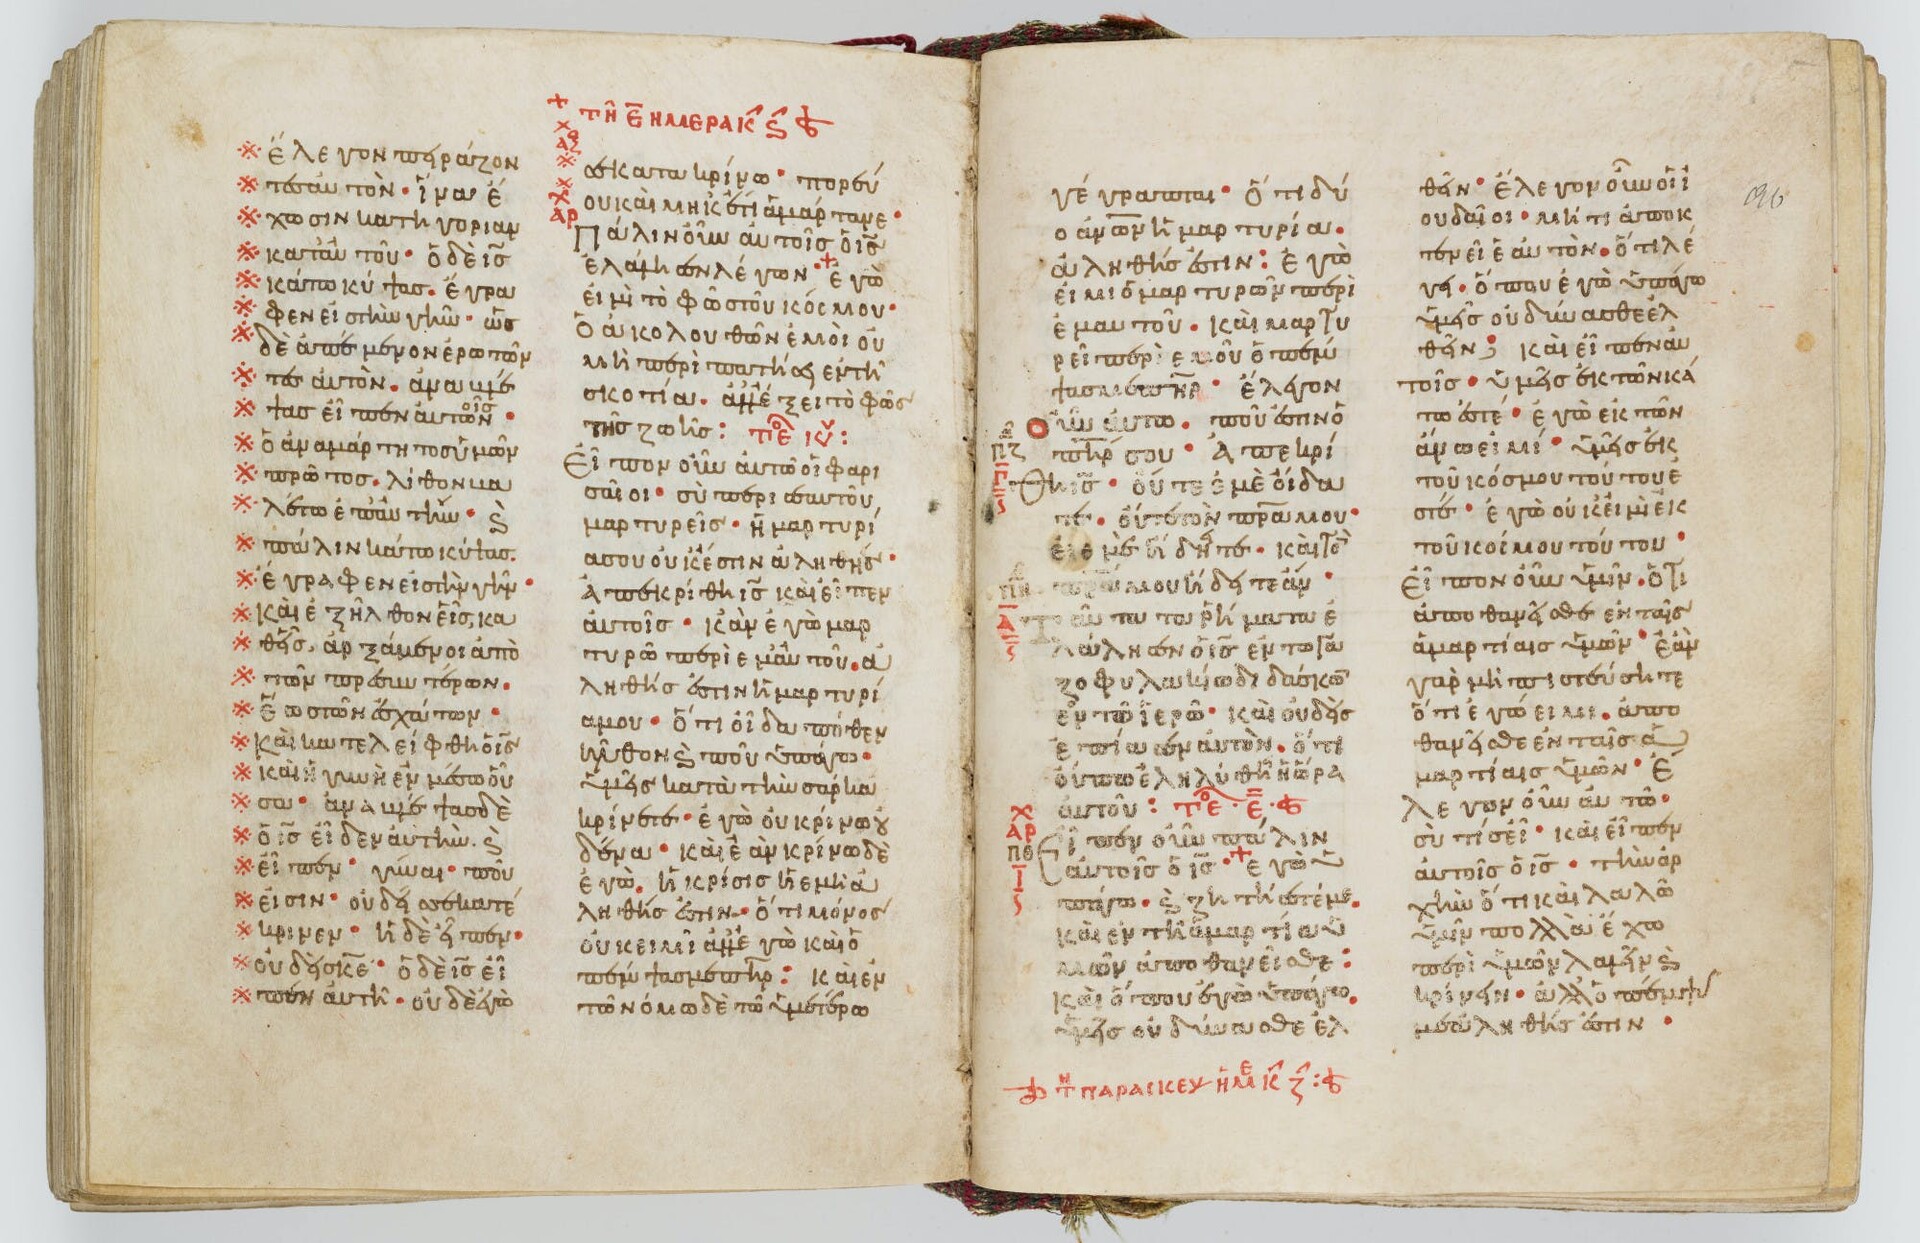 ἔλεγον πειράζον
τες αὐτὸν · ἵνα ἔ
χωσιν κατηγορίαν
κατ αὐτοῦ · ὁ δὲ ι̅ς̅
κάτω κύψας · ἔγρα
φεν εἰς τὴν γῆν · ὡς
δὲ ἐπέμενον ἐρωτῶν
τες αὐτὸν · ἀνακύ
ψας εἶπεν αὐτοῖς ·
ὁ ἀναμάρτητος ὑμῶν
πρῶτος · λίθον βα
λέτω ἐπ αὐτὴν · ϗ
πάλιν κάτω κύψας ·
ἔγραφεν εἰς τὴν γῆν ·
καὶ ἐξῆλθον εἷς κα
θεῖς · ἀρξάμενοι ἀπὸ
τῶν πρεσβυτέρων ·
ἕως τῶν ἐσχάτων ·
καὶ κατελείφθη ὁ ι̅ς̅
καὶ ἡ γυνὴ ἐν μέσω οὖ
σα · ἀνακύψας δὲ
ὁ ι̅ς̅ εἶδεν αὐτὴν · ϗ
εἶπεν · γύναι · ποῦ
εἰσιν · οὐδείς σε κατέ
κρινεν · ἡ δὲ εἶπεν ·
οὐδεὶς κ̅ε̅ · ὁ δὲ ι̅ς̅ εἶ
πεν αὐτῆ · οὐδὲ ἐγὼ
τῆ ε̅ ημερα κ ς
σε κατακρίνω · πορεύ
ου καὶ μηκέτι ἁμάρτανε ·
αρ
Πάλιν οὖν αὐτοῖς ὁ ι̅ς̅
ἐλάλησεν λέγων · ἐγὼ
εἰμὶ τὸ φῶς τοῦ κόσμου ·
ὁ ἀκολουθῶν ἐμοὶ οὐ
μὴ περιπατήσει ἐν τῆ
σκοτία · ἀλλ ἕξει τὸ φῶς
τῆς ζωῆς :
Εἶπον οὖν αὐτῶ οἱ φαρι
σαῖοι · σὺ περὶ σεαυτοῦ
μαρτυρεῖς · ἡ μαρτυρί
α σου οὐκ ἔστιν ἀληθής ·
Ἀπεκρίθη ι̅ς̅ καὶ εἶπεν
αὐτοῖς · κἂν ἐγὼ μαρ
τυρῶ περὶ ἐμαυτοῦ · ἀ
ληθής ἐστιν ἡ μαρτυρί
α μου · ὅτι οἶδα πόθεν
ἦλθον ϗ ποῦ ὑπάγω ·
ὑμεῖς κατὰ τὴν σάρκα
κρίνετε · ἐγὼ οὐ κρίνω οὐ
δένα · καὶ ἐὰν κρίνω δὲ
ἐγὼ · ἡ κρίσις ἡ ἐμὴ ἀ
ληθής ἐστιν · ὅτι μόνος
οὐκ εἰμὶ ἀλλ ἐγὼ καὶ ὁ
πέμψας με π̅η̅ρ̅ : καὶ ἐν
τῶ νόμω δὲ τῶ ὑμετέρω
γέγραπται · ὅτι δύ
ο α̅ν̅ω̅ν̅ ἡ μαρτυρία ·
ἀληθής ἐστιν : ἐγὼ
εἰμι ὁ μαρτυρῶν περὶ
ἐμαυτοῦ · καὶ μαρτυ
ρεῖ περὶ ἐμοῦ ὁ πέμ
ψας με π̅η̅ρ̅ · ἔλεγον
οὖν αὐτῶ · ποῦ ἐστιν ὁ
π̅η̅ρ̅ σου · Ἀπεκρί
θη ι̅ς̅ · οὔτε ἐμὲ οἴδα
τε · οὔτε τὸν π̅ρ̅α̅ μου ·
εἰ ἐμὲ ἤδητε · καὶ τὸν
π̅ρ̅α̅ μου ἤδητε ἄν ·
Ταῦτα τὰ ῥήματα ἐ
λάλησεν ὁ ι̅ς̅ ἐν τῶ γα
ζοφυλακίω διδάσκων
ἐν τῶ ἱερῶ · καὶ οὐδεὶς
ἐπίασεν αὐτὸν · ὅτι
οὔπω ἐληλύθη ἡ ὥρα
αὐτοῦ :
χ
αρ
πθ
Εἶπεν οὖν πάλιν
αὐτοῖς ὁ ι̅ς̅ · ἐγὼ ὑ
πάγω · ϗ ζητήσετέ με ·
καὶ ἐν τῆ ἁμαρτία ὑ
μῶν ἀποθανεῖσθε :
καὶ ὅπου ἐγὼ ὑπάγω ·
ὑμεῖς οὐ δύνασθε ἐλ
τη παρασκευ ημε κ ζ :
θεῖν · ἔλεγον οὖν οἱ ἰ
ουδαῖοι · μήτι ἀποκ
τενεῖ ἑαυτὸν · ὅτι λέ
γει · ὅπου ἐγὼ ὑπάγω
ὑμεῖς οὐ δύνασθε ἐλ
θεῖν ; καὶ εἶπεν αὐ
τοῖς · ὑμεῖς ἐκ τῶν κά
τω ἐστέ · ἐγὼ ἐκ τῶν
ἄνω εἰμί · ὑμεῖς ἐκ
τοῦ κόσμου τούτου ἐ
στέ · ἐγὼ οὐκ εἰμὶ ἐκ
τοῦ κόσμου τούτου ·
Εἶπον οὖν ὑμῖν · ὅτι
ἀποθανεῖσθε ἐν ταῖς
ἁμαρτίαις ὑμῶν · ἐὰν
γὰρ μὴ πιστεύσητε
ὅτι ἐγώ εἰμι · ἀπο
θανεῖσθε ἐν ταῖς ἁ
μαρτίαις ὑμῶν · Ἔ
λεγον οὖν αὐτῶ ·
σὺ τίς εἶ · καὶ εἶπεν
αὐτοῖς ὁ ι̅ς̅ · τὴν ἀρ
χὴν ὅτι καὶ λαλῶ
ὑμῖν πολλὰ ἔχω
περὶ ὑμῶν λαλεῖν ϗ
κρίνειν · ἀλλ ὁ πέμψας
με ἀληθής ἐστιν ·